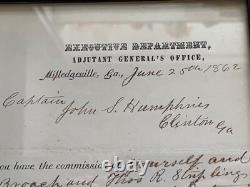 EXECUTIVE DEPARTMENT,
ADJUTANT GENERAL'S OFFICE,
Milledgeville, Ga., June 25th 1862
Captain
John S. Humphries
Clinton
Ga
you have the commission of yourself and
Broach and Thos R. Stripling